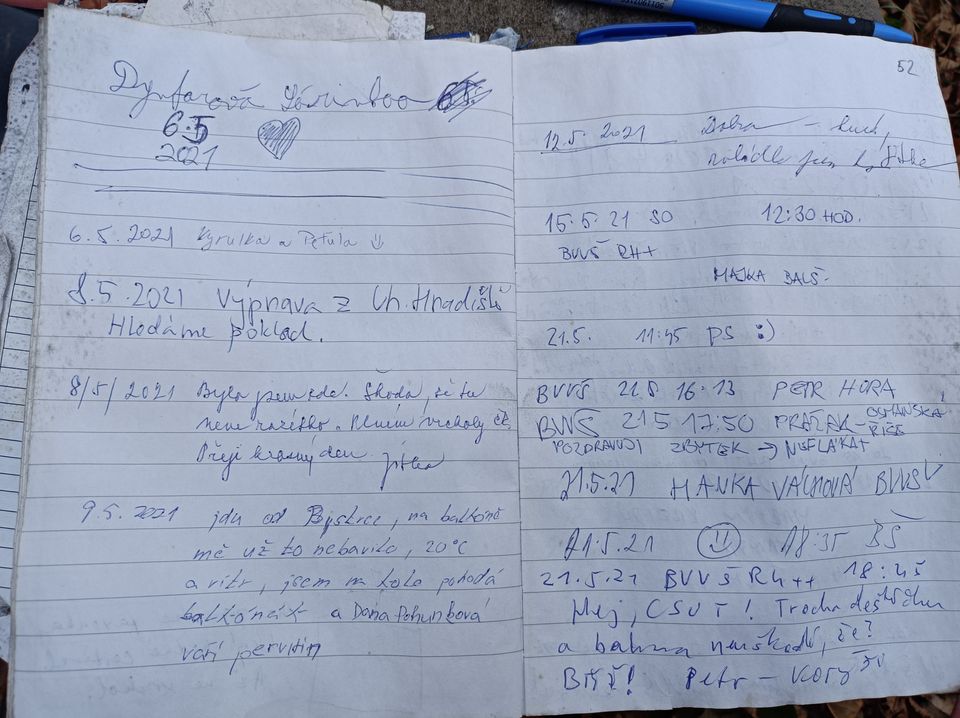 6.5
2021
6.5.2021 Kyrulka a Peťula
8.5.2021 Výprava z Ch. Hradiště
Hledáme poklad.
8/5/2021 Byla jsem zde. Škoda, že tu
není razítko. Plním vrcholy
Přeji krásný den. Jitka
9.5.2021 jdu od Bystrce, na balkóně
mě už to nebavilo, 20°C
a vítr, jsem na kolo pohodá
a Dáňa Pohunková
vaří pervitin
52
12.5. 2021 Dobrá
15.5.21 SO 12:30 HOD.
BVVŠ RH+
MAJKA BALŠ.
21.5. 11:45 PS :)
BVVŠ 21.5 16:13 PETR HORA
BVVŠ 21.5 17:50 PRAŽAK - OSMANSKÁ
ŘÍŠE
POZDRAVUJI ZBYTEK → NEFLÁKAT
21.5.21 HANKA VÁCHOVÁ BVVŠ
21.5.21 18:35 BŠ
21.5.21 BVVŠ RH++ 18:45
Hej, CSUT! Trocha deštíčku
a bahna neuškodí, že?
Petr - Kory